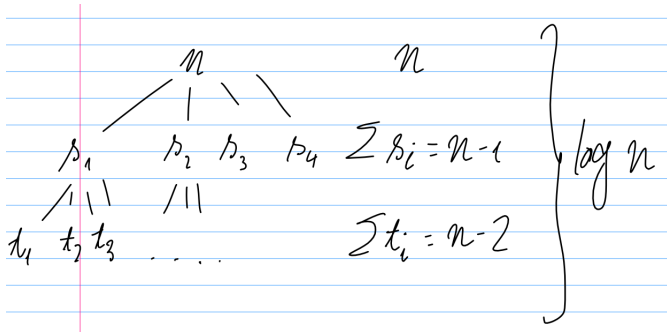 n n
s₁ s₂ s₃ s₄ ∑ sᵢ = n-1 log n
t₁ t₂ t₃ ..... ∑ tᵢ = n-2